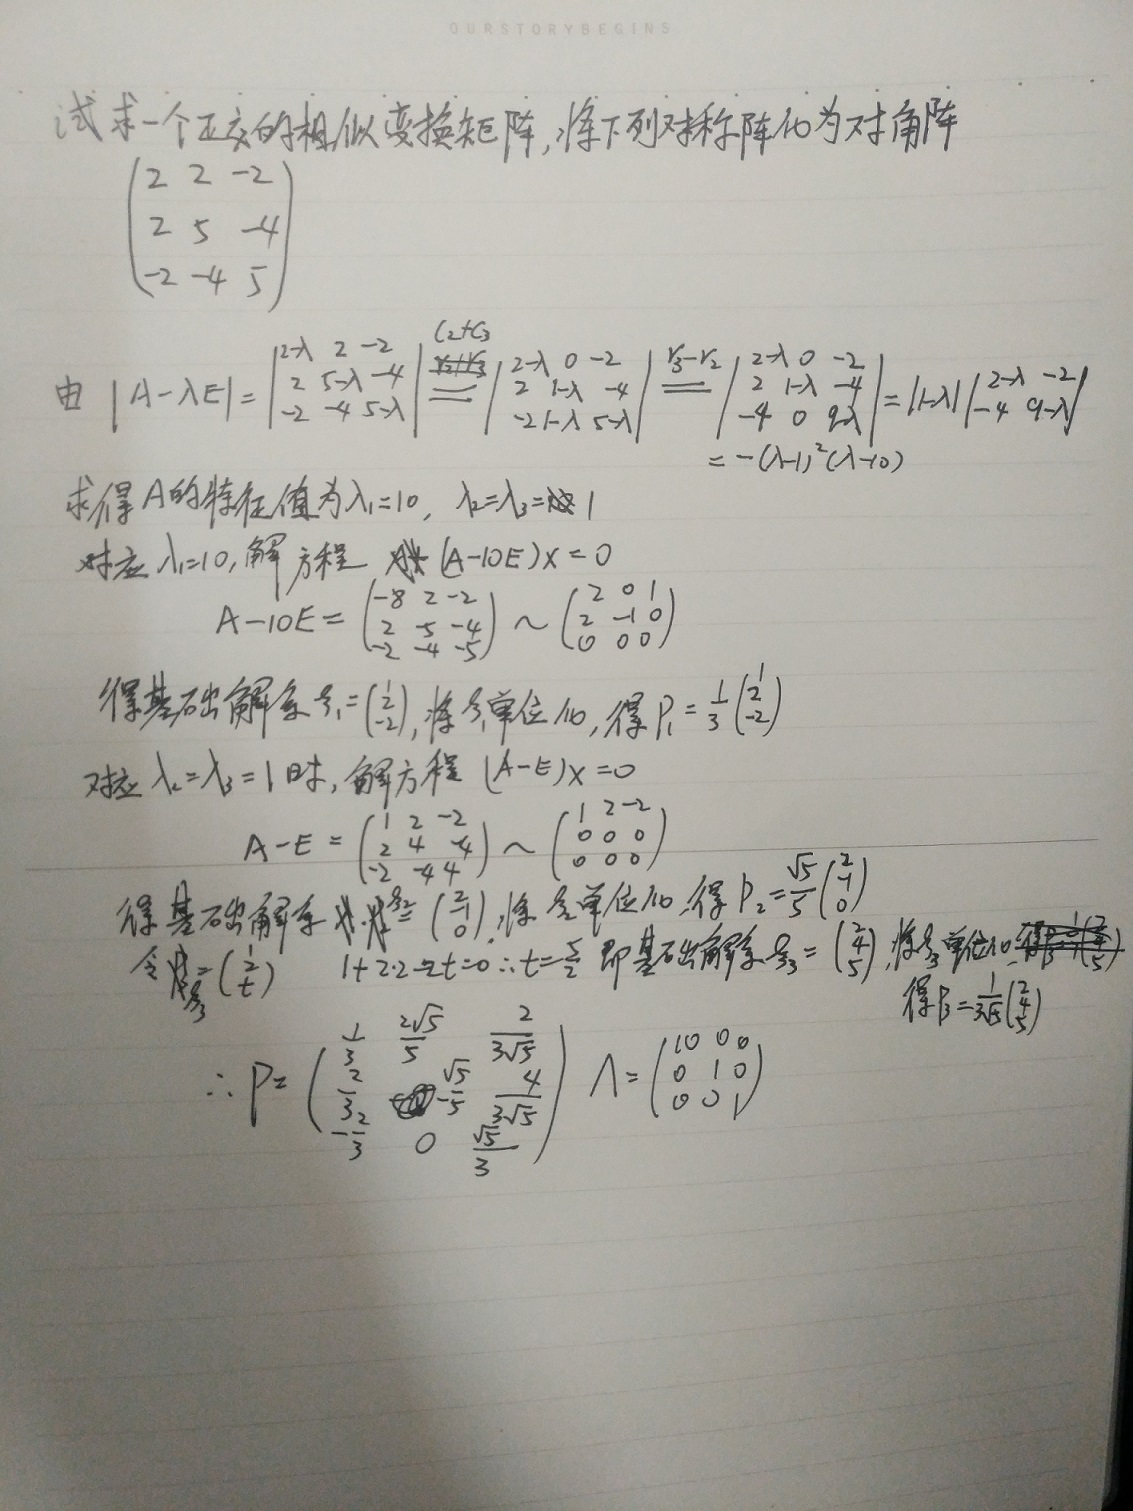 OURSTORYBEGINS
试求一个正交的相似变换矩阵,将下列对称阵化为对角阵
(2 2 -2
2 5 -4
-2 -4 5)
由 |A-λE| = |2-λ 2 -2; 2 5-λ -4; -2 -4 5-λ| C2+C3 = |2-λ 0 -2; 2 1-λ -4; -2 1-λ 5-λ| r3-r2 = |2-λ 0 -2; 2 1-λ -4; -4 0 9-λ| = |1-λ| |2-λ -2; -4 9-λ|
= -(λ-1)²(λ-10)
求得A的特征值为λ₁=10, λ₂=λ₃=1
对应λ₁=10,解方程 (A-10E)x=0
A-10E = (-8 2 -2; 2 -5 -4; -2 -4 -5) ~ (2 0 1; 2 -1 0; 0 0 0)
得基础解系ξ₁=(1; 2; -2),将ξ₁单位化,得P₁=1/3(1; 2; -2)
对应λ₂=λ₃=1时,解方程(A-E)x=0
A-E = (1 2 -2; 2 4 -4; -2 -4 4) ~ (1 2 -2; 0 0 0; 0 0 0)
得基础解系 ξ₂=(2; -1; 0),将ξ₂单位化,得P₂=√5/5(2; -1; 0)
令ξ₃=(1; 2; t) 1+2·2-2t=0 ∴t=5/2 即基础解系ξ₃=(2; 4; 5),将ξ₃单位化,
得P₃=1/3√5(2; 4; 5)
∴P=(1/3 2√5/5 2/3√5; 2/3 -√5/5 4/3√5; -2/3 0 √5/3) Λ=(10 0 0; 0 1 0; 0 0 1)